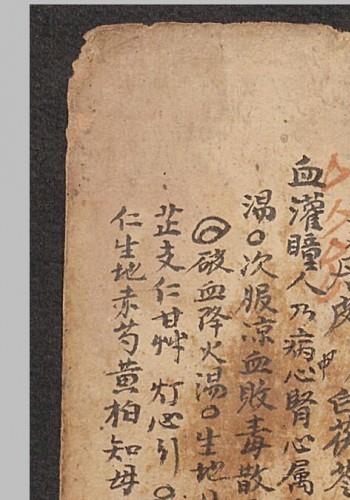 白茯苓
血灌瞳人乃病心腎心属
湯〇次服凉血敗毒散
◎破血降火湯〇生地
芷支仁甘艸灯心引〇
仁生地赤芍黄柏知母